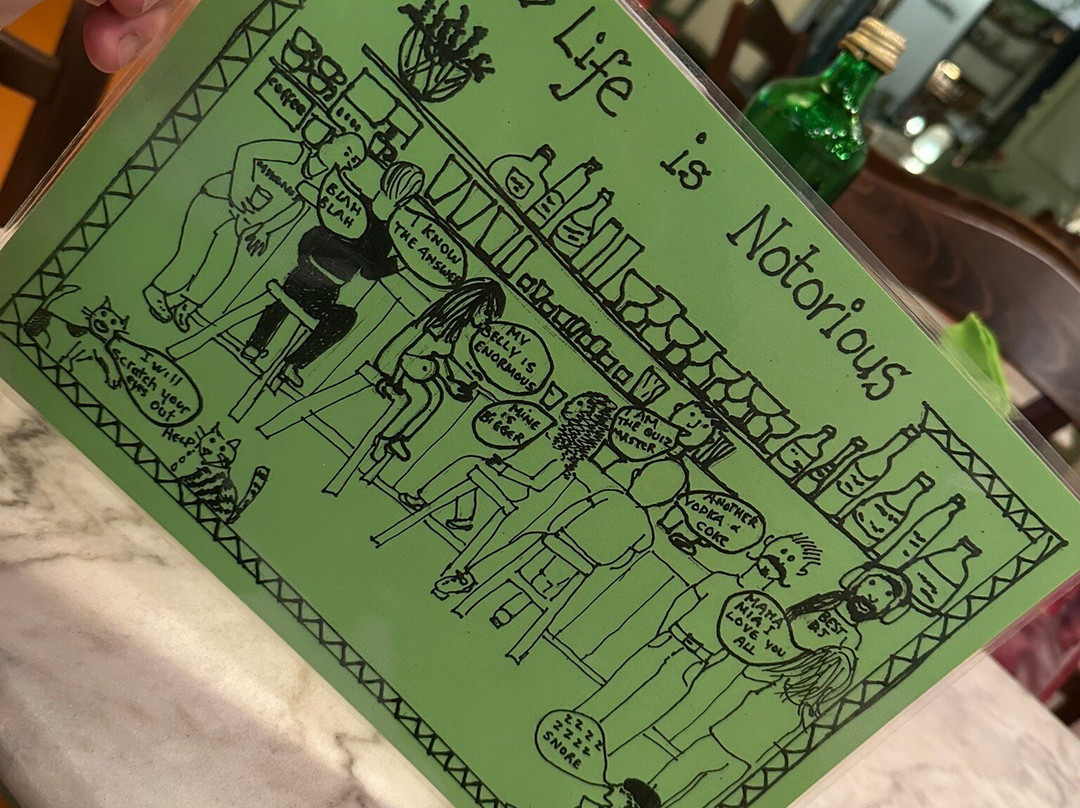 Life is Notorious
Coffee
BLAH
BLAH
I KNOW
THE ANSWER
MY
BELLY IS
ENORMOUS
MINE
IS
BIGGER
I AM
THE QUIZ
MASTER
ANOTHER
VODKA &
COKE
MAMA
MIA I
LOVE YOU
ALL
BEST
DJ
I will
scratch your
eyes out
HELP
ZZZZ
ZZZZ
SNORE